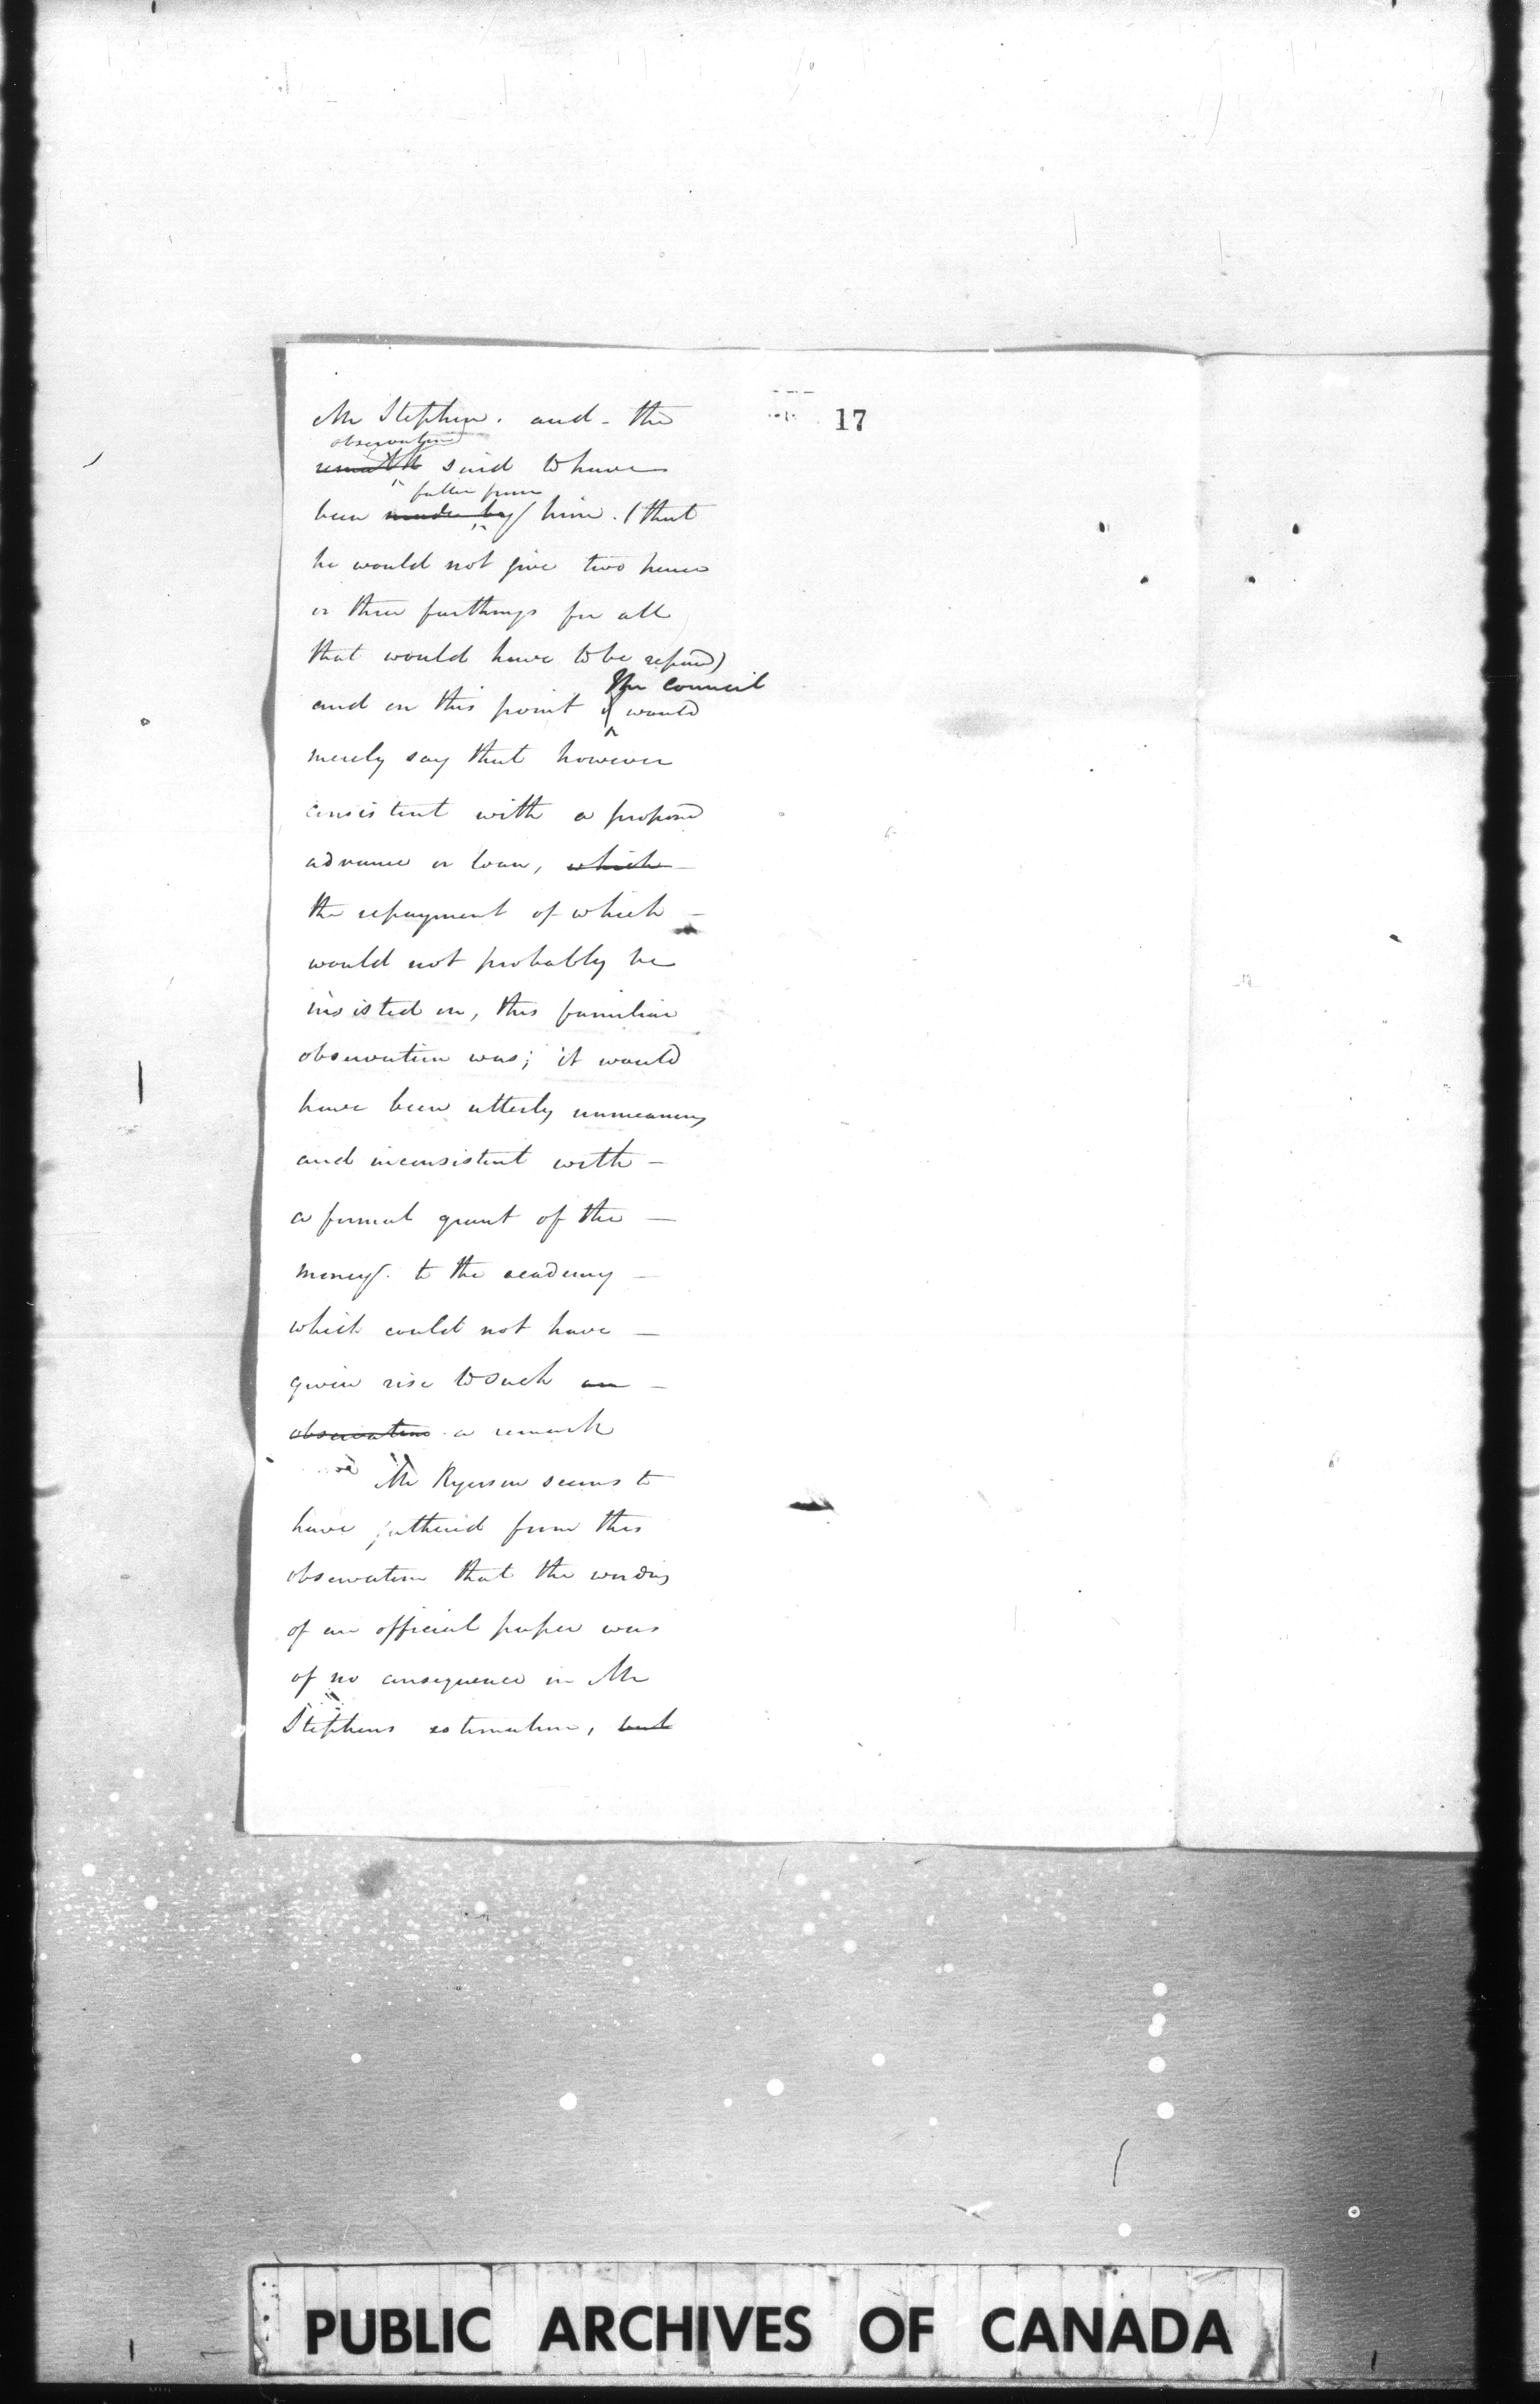 17
Mr Stephen. and - the
observation
remark said to have
fallen from
been made by him. (that
he would not give two pence
or three farthings for all
that would have to be repaid)
The Council
and on this point would
merely say that however
consistent with a proposed
advance or loan, which
the repayment of which -
would not probably be
insisted on, this familiar
observation was; it would
have been utterly unmeaning
and inconsistent with -
a formal grant of the -
money. to the academy -
which could not have -
given rise to such an -
observation a remark
Mr Ryerson seems to
have gathered from this
observation that the wording
of an official paper was
of no consequence in Mr
Stephens estimation, but
PUBLIC ARCHIVES OF CANADA